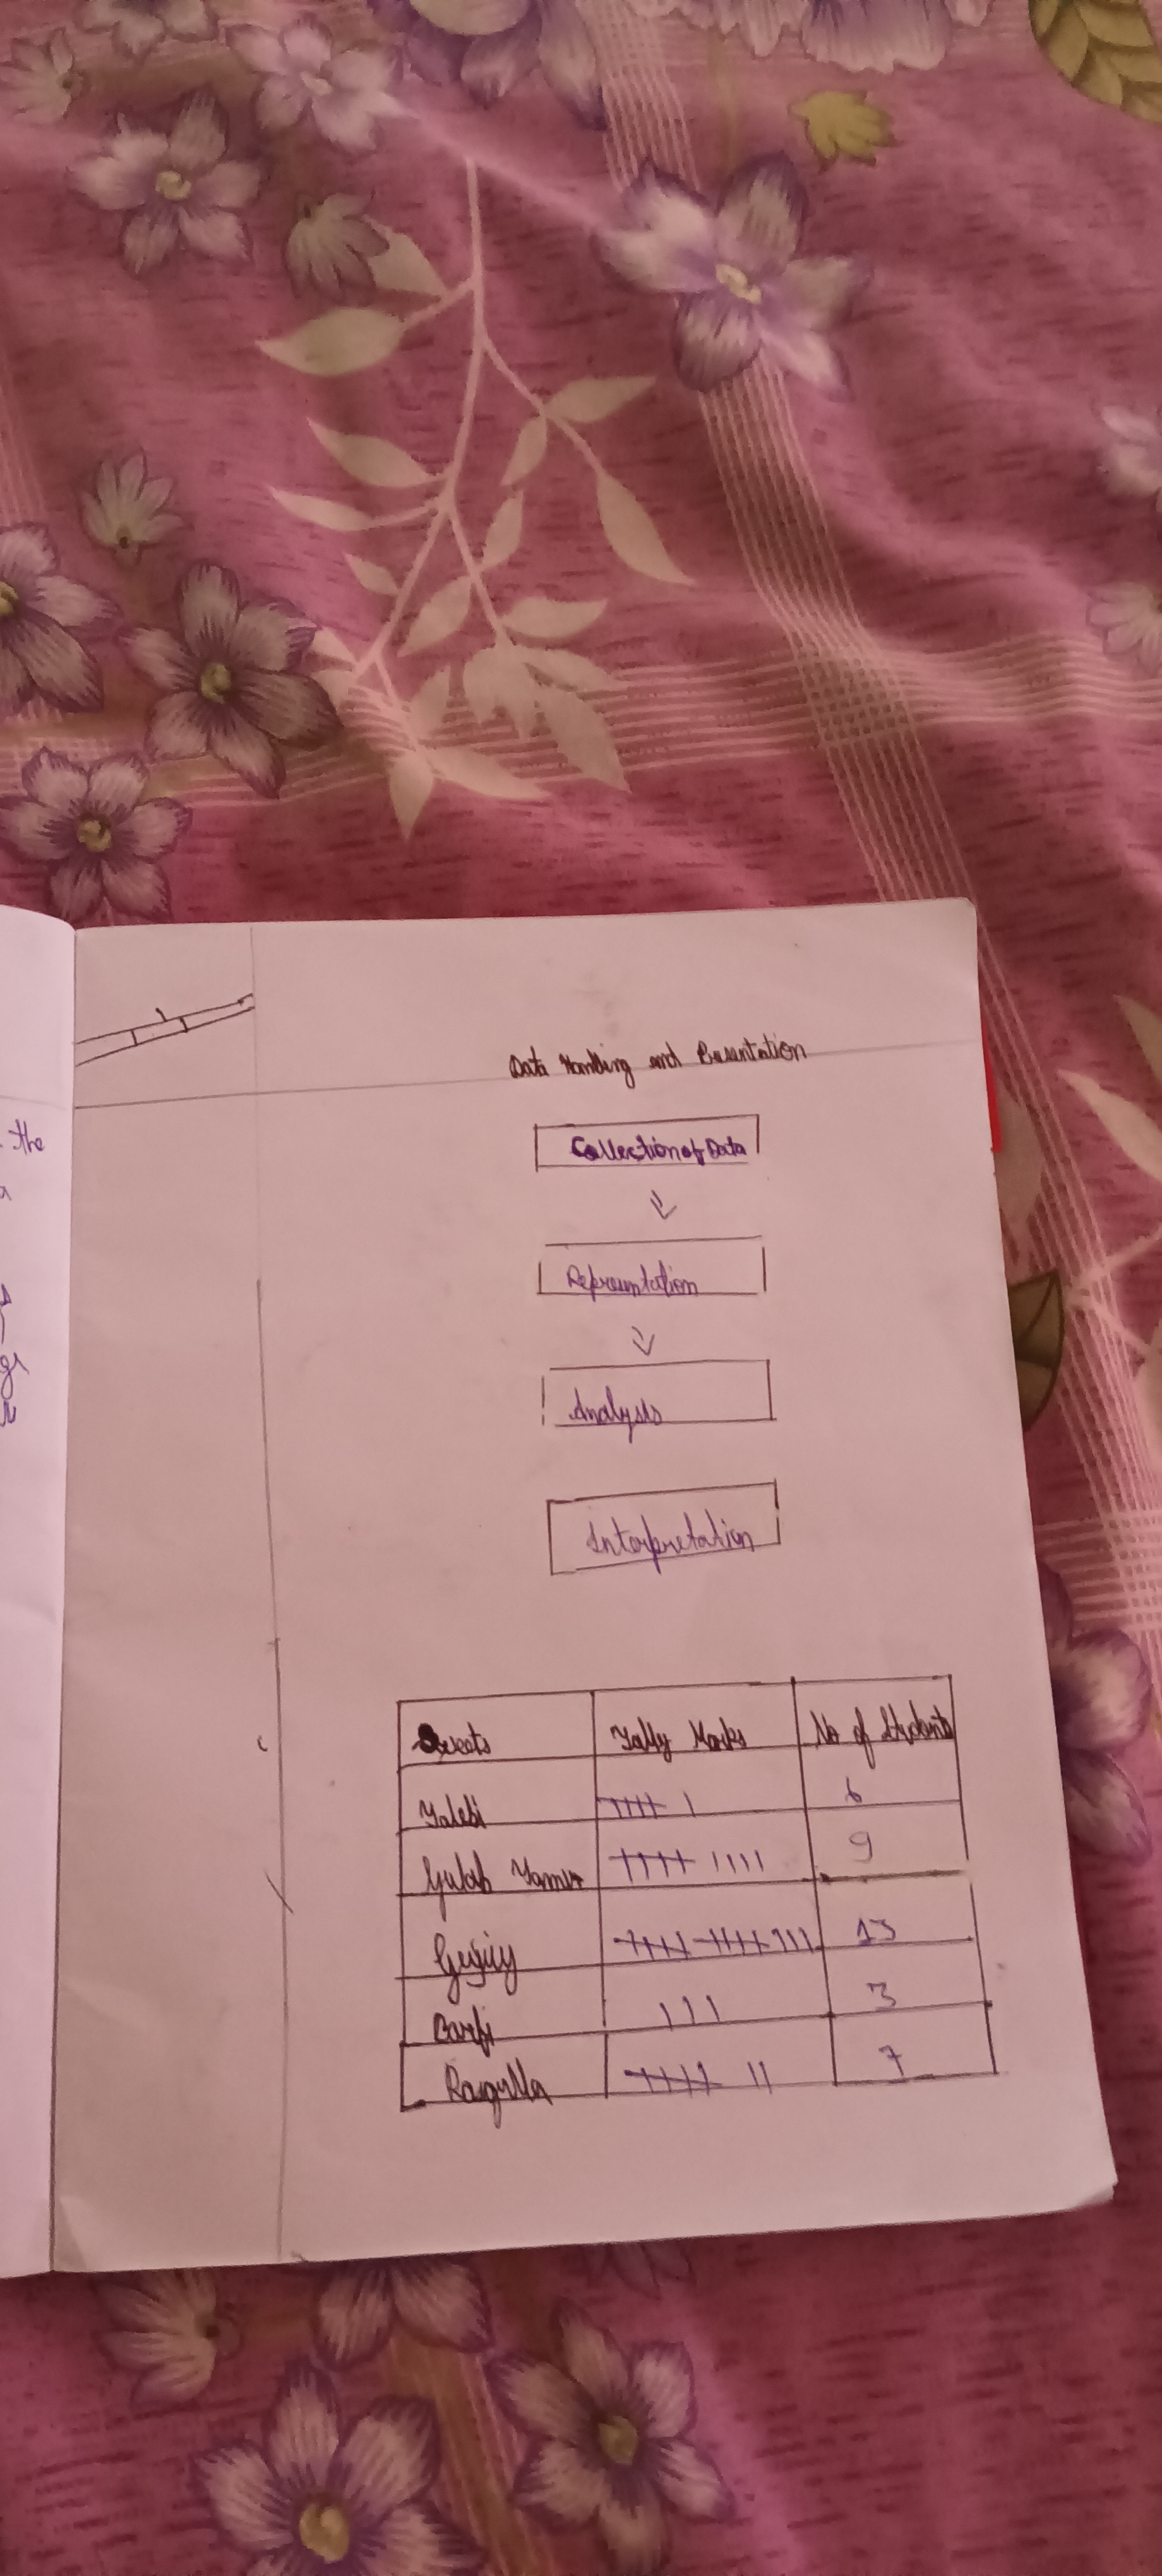 the
Data Handling and Presentation
Collection of Data
Representation
Analysis
Interpretation
Sweets Tally Marks No of Students
Jalebi 6
Gulab Jamun 9
Gujiy 13
Barfi 3
Rasgulla 7